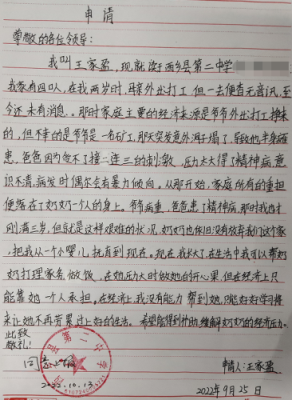 申请
尊敬的各位领导:
我叫王家盈,现就读于西乡县第二中学
我家有四口人,在我两岁时,母亲外出打工,但一去便杳无音讯,至
今还未有消息。那时家庭主要的经济来源是爷爷外出打工挣来
的,但不幸的是爷爷是一名矿工,那天突发意外洞子塌了,导致他半身瘫
患,爸爸因为受不了接二连三的刺激,压力太大得了精神病意
识不清,病发时偶尔会有暴力倾向,从那开始,家庭所有的重担
便落在了奶奶一个人的身上。爷爷病重,爸爸患了精神病,那时我才
刚满三岁,但就是这样艰难的状况,奶奶也依旧没有放弃我们这个家
,把我从一个小婴儿,抚育到现在。现在我长大了,在生活中我可以帮奶
奶打理家务做饭,在她压力大时做她的开心果,但在经济上只
能靠她一个人承担。在经济上我没能力帮到她,只能好好学习将
来让她不再劳累过上好的生活。希望能得到补助,缓解奶奶的经济压力。
此致
敬礼!
申请人:王家盈
2022.10.13
2022年9月25日